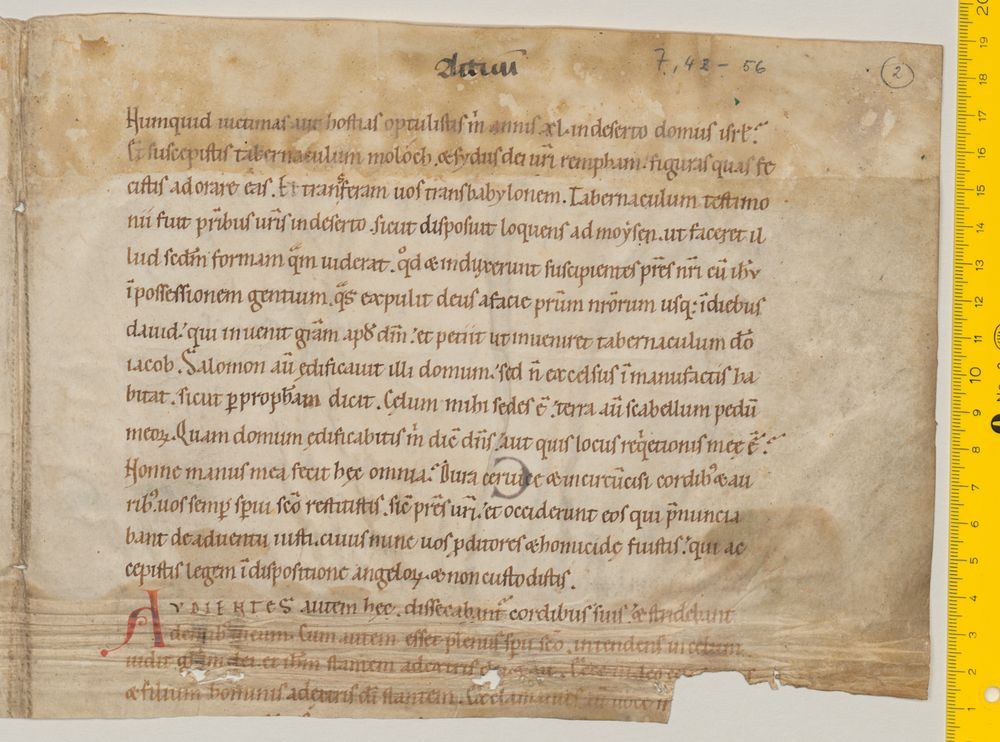 Actuū
7, 42 - 56
2
Numquid uictimas aut hostias optulistis m̄ annis xl. in deserto domus isrł?
Et suscepistis tabernaculum moloch. & sydus dei ur̄i rempham. figuras quas fe
cistis adorare eas. Et transferam uos trans babylonem. Tabernaculum testimo
nii fuit pr̄ibus ur̄is in deserto. sicut disposuit loquens ad moysen. ut faceret il
lud scdm̄ formam qm̄ uiderat. qd & induxerunt suscipientes pr̄es nr̄i cū ihv̄
ī possessionem gentium. qs expulit deus a facie pr̄um nr̄orum usq; ī diebus
dauid. qui inuenit gr̄am apd dm̄. et petiit ut inueniret tabernaculum dō
iacob. Salomon aū edificauit illi domum. sed n̄ excelsus ī manufactis ha
bitat. sicut p propham dicit. Celum mihi sedes ē. terra aū scabellum pedū
meoꝝ. Quam domum edificabitis m̄ dic̄ dn̄s. aut quis locus reqetionis meę ē?
Nonne manus mea fecit hęc omnia? Dura ceruice & incircūcisi cordibꝰ & au
ribꝰ. uos semp spui scō restitistis. sic̄ pr̄es ur̄i. et occiderunt eos qui p̄nuncia
bant de aduentu iusti. cuius nunc uos pditores & homicidę fuistis. qui ac
cepistis legem ī dispositione angeloꝝ. & non custodistis.
AVDIENTES autem hęc. dissecabantˀ cordibus suis. & stridebant
dentibꝰ in eum. Cum autem esset plenus spu scō. intendens in celum.
uidit gl̄am dei. et ihm̄ stantem a dextris
& filium hominis a dextris dī stantem. Exclamantes aū uoce